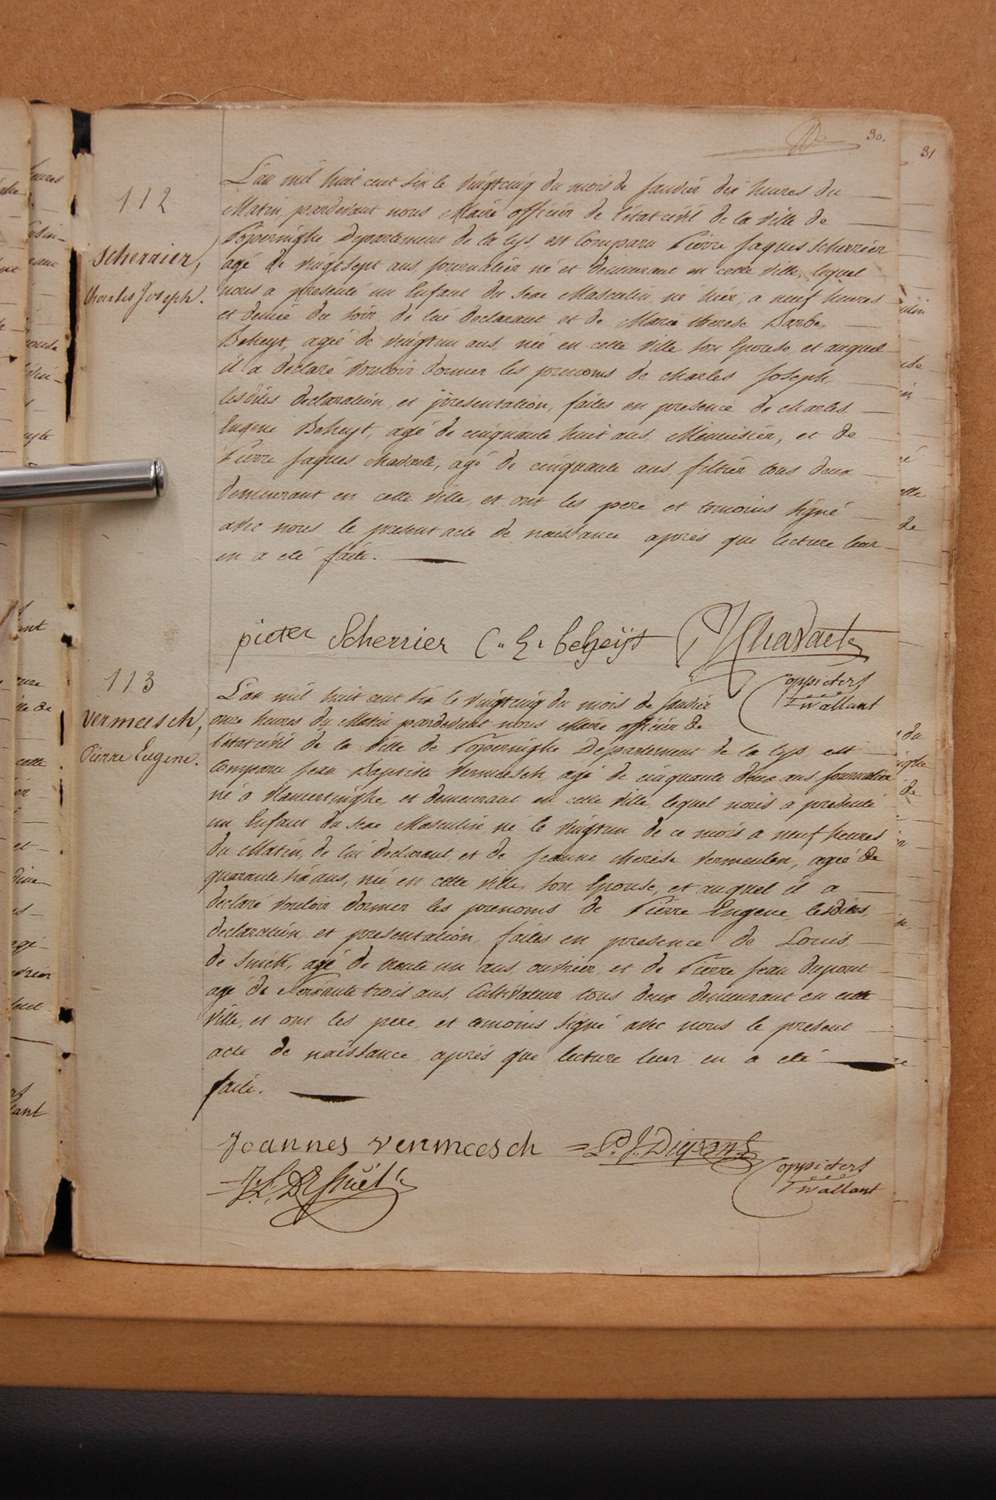 30.
31
112
Scherrier,
Charles Joseph.
L'an mil huit cent six le vingtcinq du mois de Janvier dix heures du
Matin, pardevant nous Maire officier de l'état civil de la ville de
Poperinghe Departement de la Lys est Comparu Pierre Jaques Scherrier
agé de vingtsept ans Journalier né et demeurant en cette ville, lequel
nous a presenté un Enfant du sexe Masculin né hier, a neuf heures
et demie du soir de lui declarant et de Marie therese Barbe
Beheyt, agée de vingtun ans, née en cette ville son Epouse, et auquel
il a declaré vouloir donner les prenoms de Charles Joseph,
lesdites declaration, et presentation, faites en presence de Charles
Eugene Beheyt, agé de cinquante huit ans, Menuisier, et de
Pierre Jaques agé de cinquante ans, tous deux
demeurant en cette ville, et ont les pere et temoins signé
avec nous le present acte de naissance après que lecture leur
en a eté faite.
pieter Scherrier C. E. beheÿt
Coppieters
T'wallant
113
Vermeesch,
Pierre Eugene.
L'an mil huit cent six le vingtcinq du mois de Janvier
onze heures du Matin pardevant nous Maire officier de
l'état civil de la ville de Poperinghe Departement de la Lys est
Comparu Jean Baptiste Vermeesch agé de cinquante deux ans Journalier
né a Vlamertinghe et demeurant en cette ville, lequel nous a presenté
un Enfant du sexe Masculin né le vingtun de ce mois a neuf heures
du Matin, de lui declarant et de Jeanne therese Vermeulen, agée de
quarante six ans, née en cette ville, son Epouse, et auquel il a
declaré vouloir donner les prenoms de Pierre Eugene, lesdites
declaration, et presentation, faites en presence de Louis
agé de trente un ans ouvrier, et de Pierre Jean dupont
agé de soixante trois ans, Cultivateur tous deux demeurant en cette
ville, et ont les pere, et temoins signé avec nous le present
acte de naissance, après que lecture leur en a eté
faite.
Joannes vermeesch P. J. Dupont
Coppieters
T'wallant